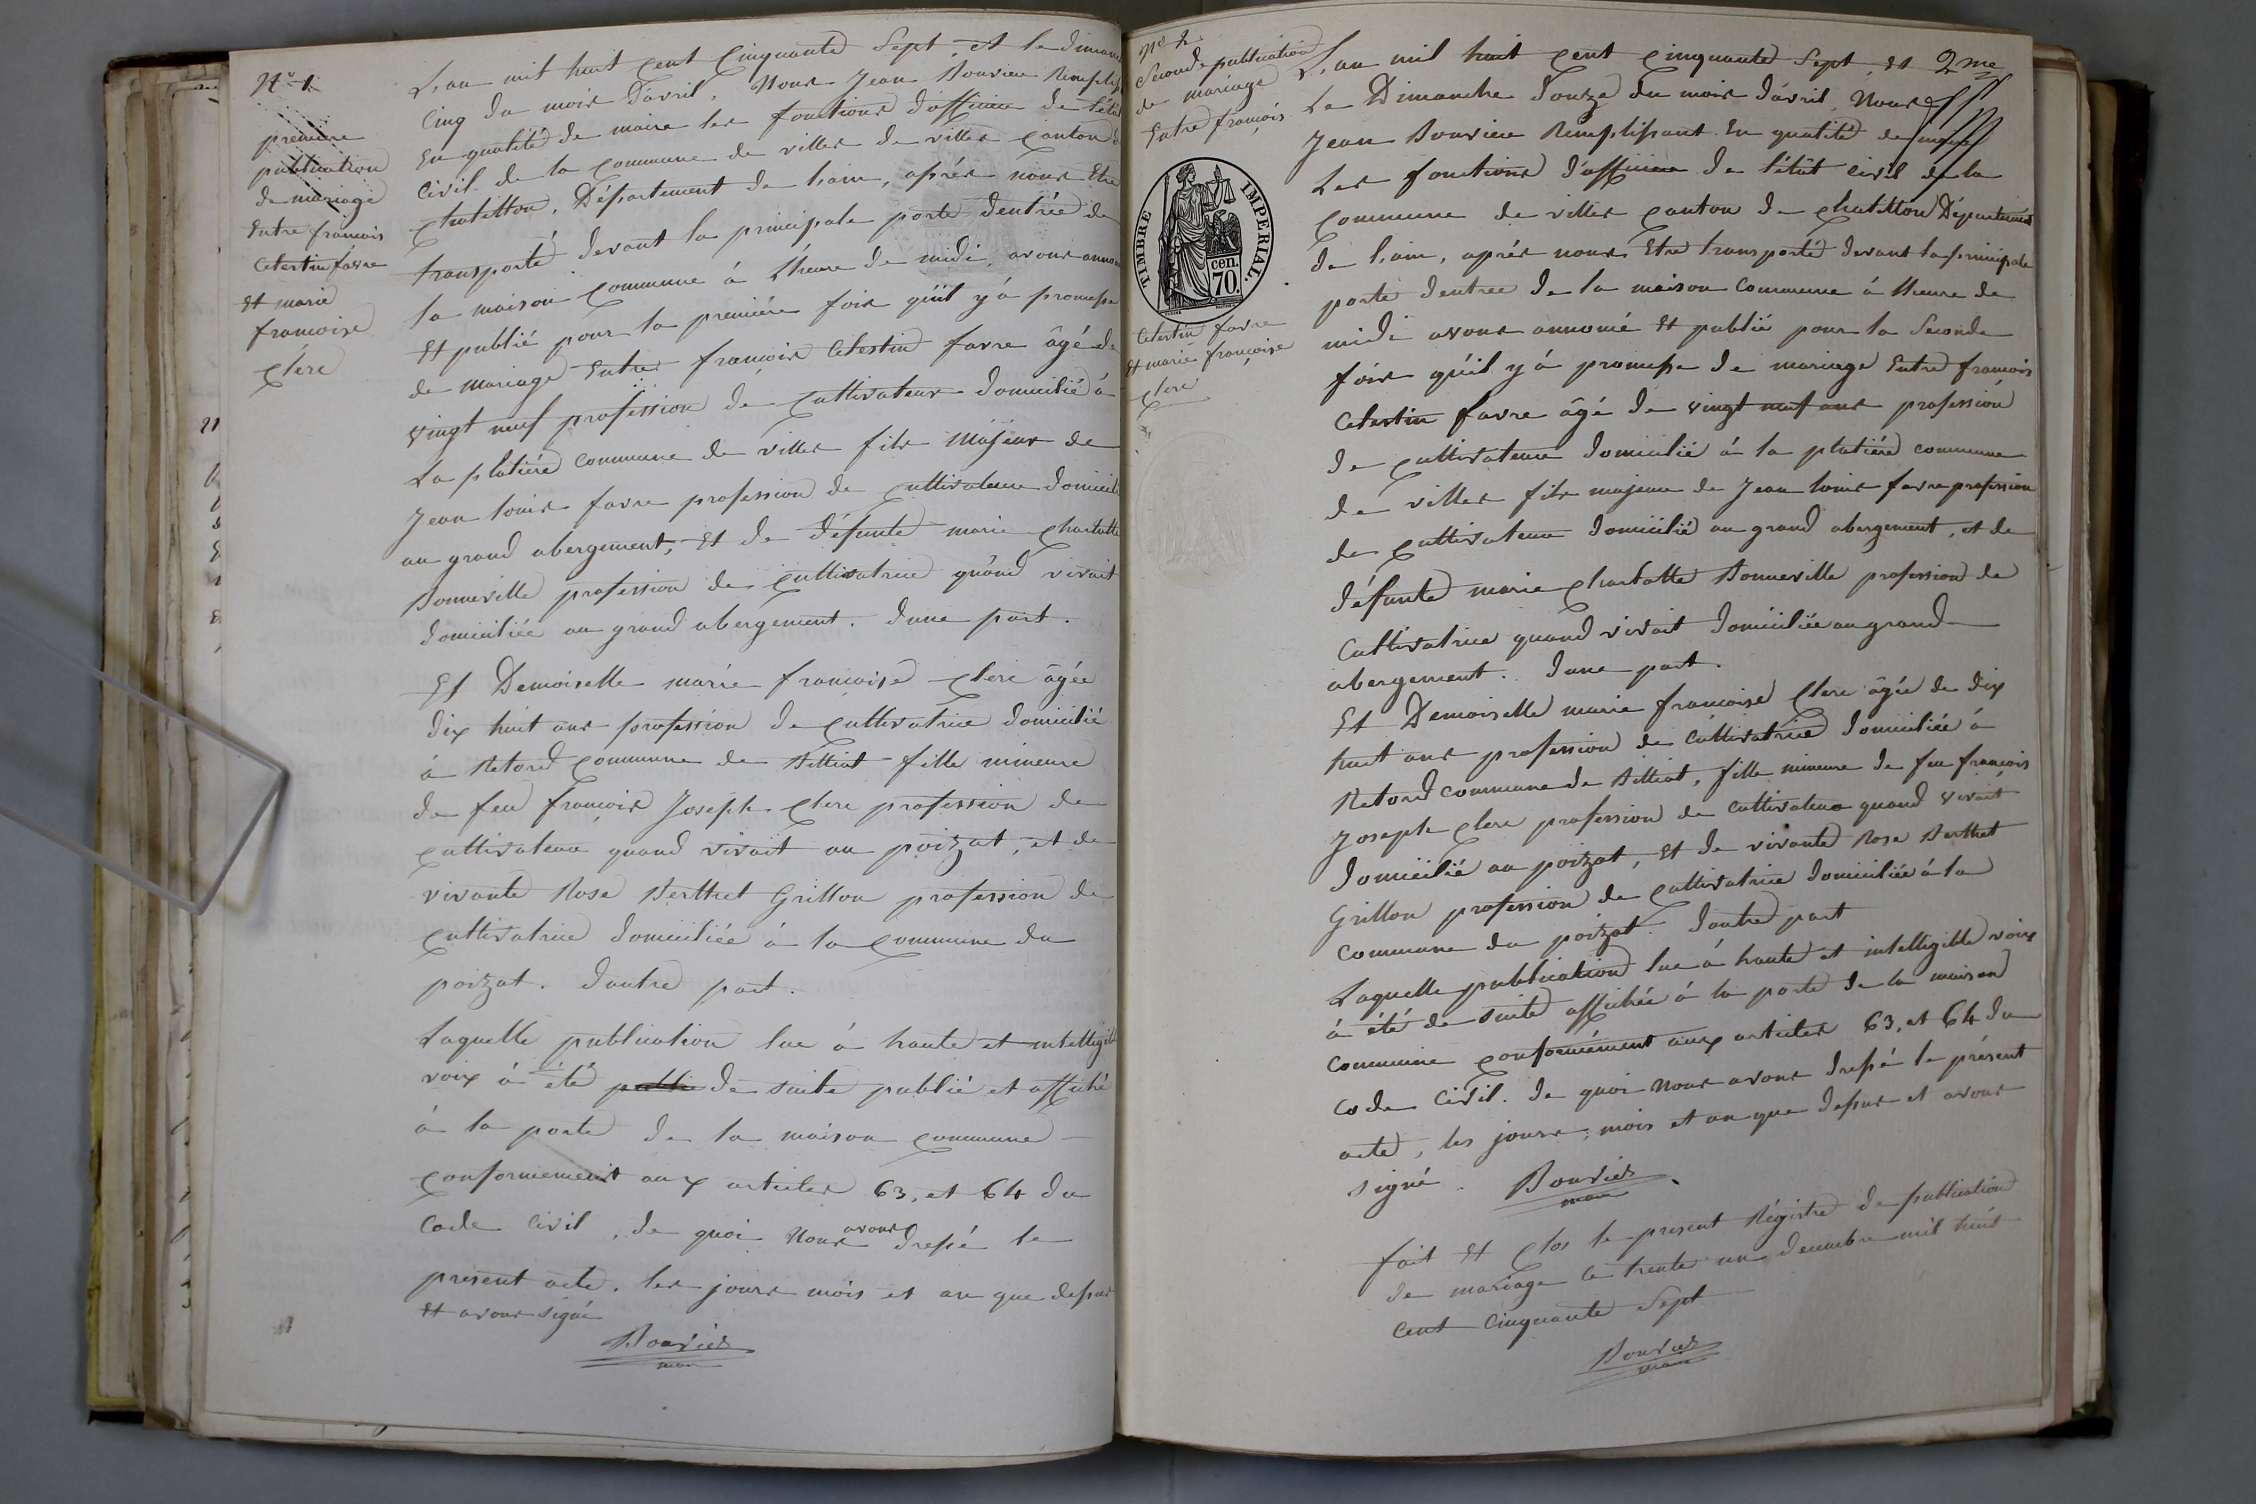 N° 1
première
publication
de mariage
Entre francois
Celestin favre
Et marie
francoise
Clerc
L'an mil huit cent Cinquante Sept, et le diman
Cinq du mois D'avril, Nous Jean Bouvier Remplis
En qualité de maire les fonctions d'afficier de l'état
Civil de la Commune de villes de villes Canton d
Chatillon, Département de l'ain, aprés nous Etre
transporté devant la principale porte dentrée de
la maison Commune à L'heure de midi, avons anno
Et publié pour la première fois qu'il y'à promesse
de Mariage Entre francois Celestin favre âgé de
vingt neuf profession de Cultivateur domicilié à
La platière Commune de villes fils Majeur de
Jean louis favre profession de Cultivateur domicili
au grand abergement, Et de défunte marie Charlotte
Bonneville profession de Cultivatrice quand vivait
domiciliée au grand abergement. dune part.
Et Demoiselle marie francoise Clerc âgée
dix huit ans profession de Cultivatrice domicilié
à Retord Commune de Billiat fille mineure
de feu francois Joseph Clerc profession de
Cultivateur quand vivait au poizat, et de
vivante Rose Berthet Grillon profession de
Cultivatrice domiciliée à la Commune du
poizat. dautre part.
Laquelle publication lue à haute et intelligibl
voix à été publi de suite publié et affiché
à la porte de la maison Commune
Conformement aux articles 63, et 64 du
Code Civil, de quoi Nous avons dressé le
présent acte, les jours mois et an que dessus
Et avons signé
Bouvier
maire
N° 2
Seconde publication
de mariage
Entre françois
TIMBRE IMPERIAL.
cen.
70.
Celestin favre
Et marie françoise
Clerc
L'an mil huit Cent Cinquante Sept, Et 2me
Le Dimanche douze du mois d'avril, Nous
Jean Bouvier Remplissant En qualité de maire
Les fonctions d'afficier de l'état Civil de la
Commune de villes Canton de Chatillon Département
de l'ain, aprés nous Etre transporté devant la principale
porte dentree de la maison Commune à l'heure de
midi avons annoncé Et publié pour la Seconde
fois qu'il y'à promesse de mariage Entre francois
Celestin favre âgé de vingt neuf ans profession
de Cultivateur domicilié à la platière Commune
de villes fils majeur de Jean louis favre profession
de Cultivateur domicilié au grand abergement, et de
défunte marie Charlotte Bonneville profession de
Cultivatrice quand vivait domiciliée au grand
abergement. dune part.
Et Demoiselle marie francoise Clerc âgée de dix
huit ans profession de Cultivatrice domiciliée à
Retord Commune de Billiat, fille mineure de feu françois
Joseph Clerc profession de Cultivateur quand vivait
domicilié au poizat, Et de vivante Rose Berthet
Grillon profession de Cultivatrice domiciliée à la
Commune du poizat. dautre part
Laquelle publication lue à haute et intelligible voix
à été de suite affichée à la porte de la maison
Commune Conformément aux articles 63, et 64 du
Code Civil. de quoi Nous avons dressé le présent
acte, les jours, mois et an que dessus et avons
signé.
Bouvier
maire
fait Et Clos le present Régistre de publication
de mariage le trente un decembre mil huit
Cent Cinquante Sept
Bouvier
maire